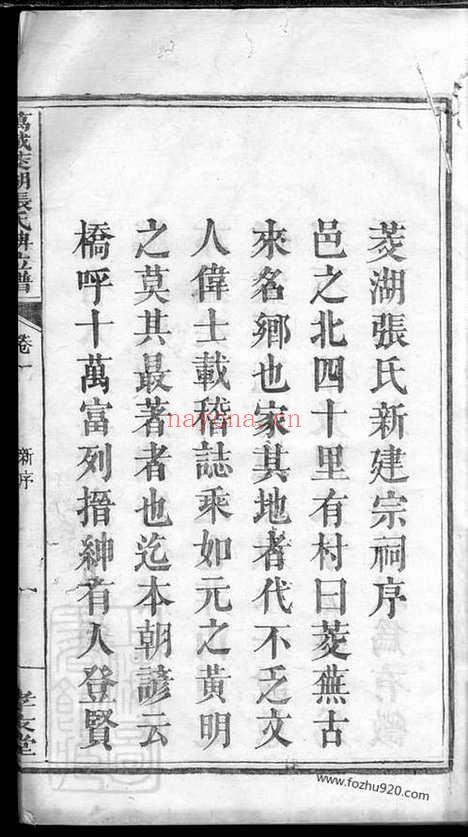 菱湖張氏新建宗祠序
邑之北四十里有村曰菱蕪古
來名鄉也家其地者代不乏文
人偉士載稽誌乘如元之黃明
之莫其最著者也迄本朝諺云
橋呼十萬富列搢紳有人登賢
湖張氏
譜
卷一
新序
一
孝友堂
nayona.cn
www.fozhu920.com